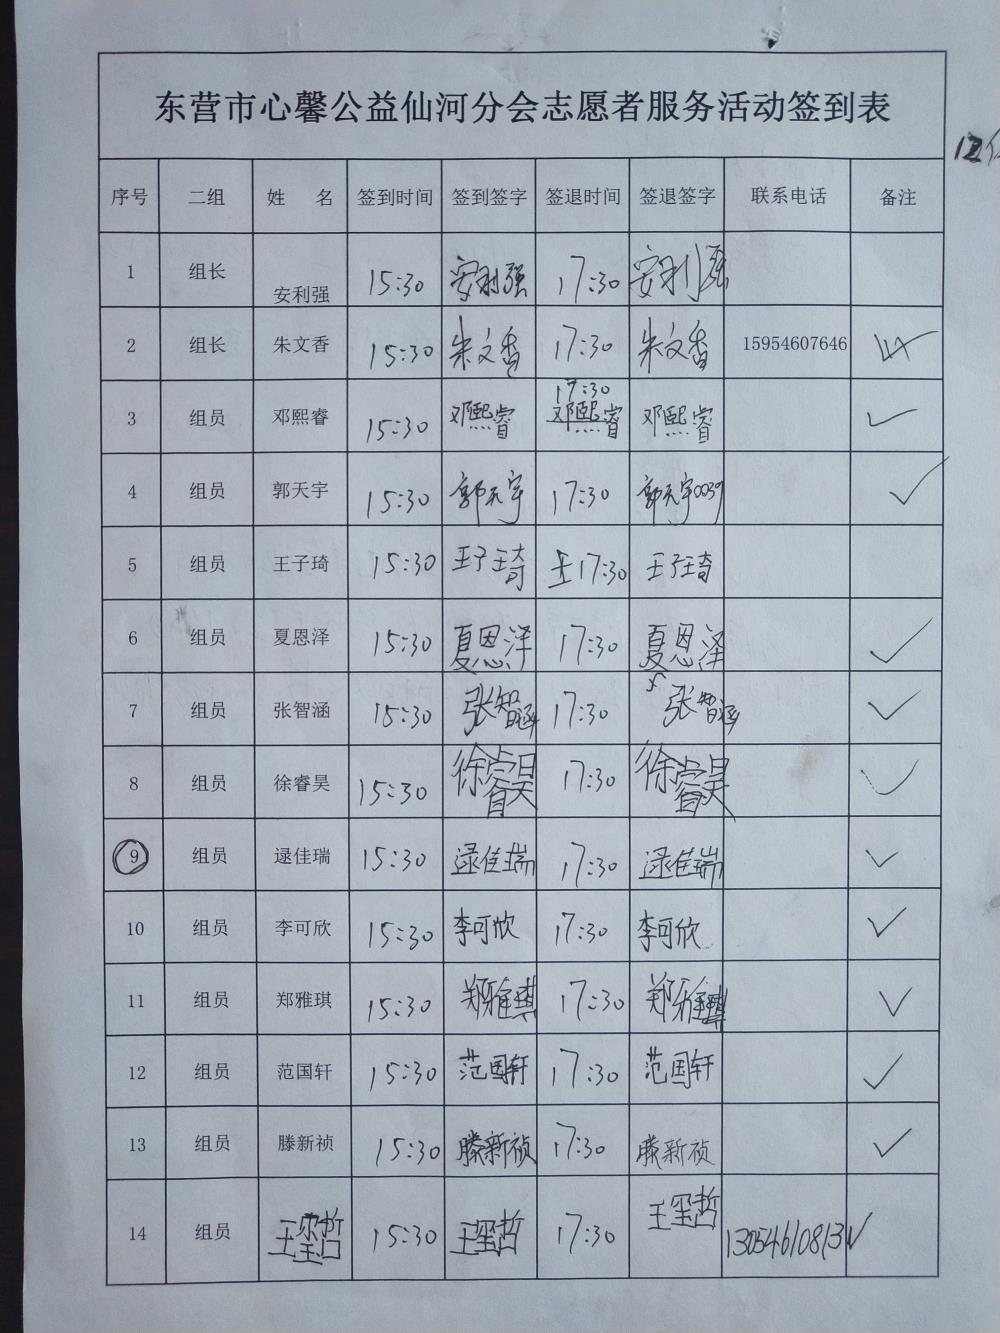 东营市心馨公益仙河分会志愿者服务活动签到表
12
序号 二组 姓 名 签到时间 签到签字 签退时间 签退签字 联系电话 备注
1 组长 安利强 15:30 安利强 17:30 安利强
2 组长 朱文香 15:30 朱文香 17:30 朱文香 15954607646
3 组员 邓熙睿 15:30 邓熙睿 17:30 邓熙睿 邓熙睿
4 组员 郭天宇 15:30 郭天宇 17:30 郭天宇0039
5 组员 王子琦 15:30 王子琦 17:30 王子琦
6 组员 夏恩泽 15:30 夏恩泽 17:30 夏恩泽
7 组员 张智涵 15:30 张智涵 17:30 张智涵
8 组员 徐睿昊 15:30 徐睿昊 17:30 徐睿昊
9 组员 逯佳瑞 15:30 逯佳瑞 17:30 逯佳瑞
10 组员 李可欣 15:30 李可欣 17:30 李可欣
11 组员 郑雅琪 15:30 郑雅琪 17:30 郑雅琪
12 组员 范国轩 15:30 范国轩 17:30 范国轩
13 组员 滕新祯 15:30 滕新祯 17:30 滕新祯
14 组员 王玺哲 15:30 王玺哲 17:30 王玺哲 13054610813